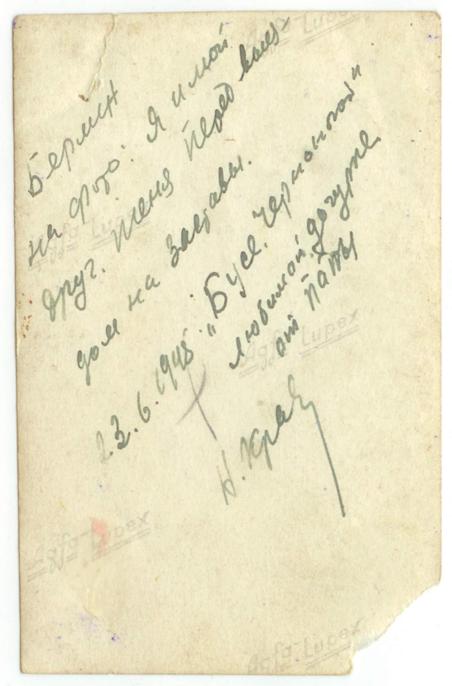 Берлин
на фото: Я и мой
друг. Женя Перед выез
дом на Заставы.
23.6.1945
"Бусе. Черноногой"
любимой дочурке
от папы
Н. Крав
Agfa-Lupex
Agfa-Lupex
Agfa-Lupex
Agfa-Lupex
Agfa-Lupex